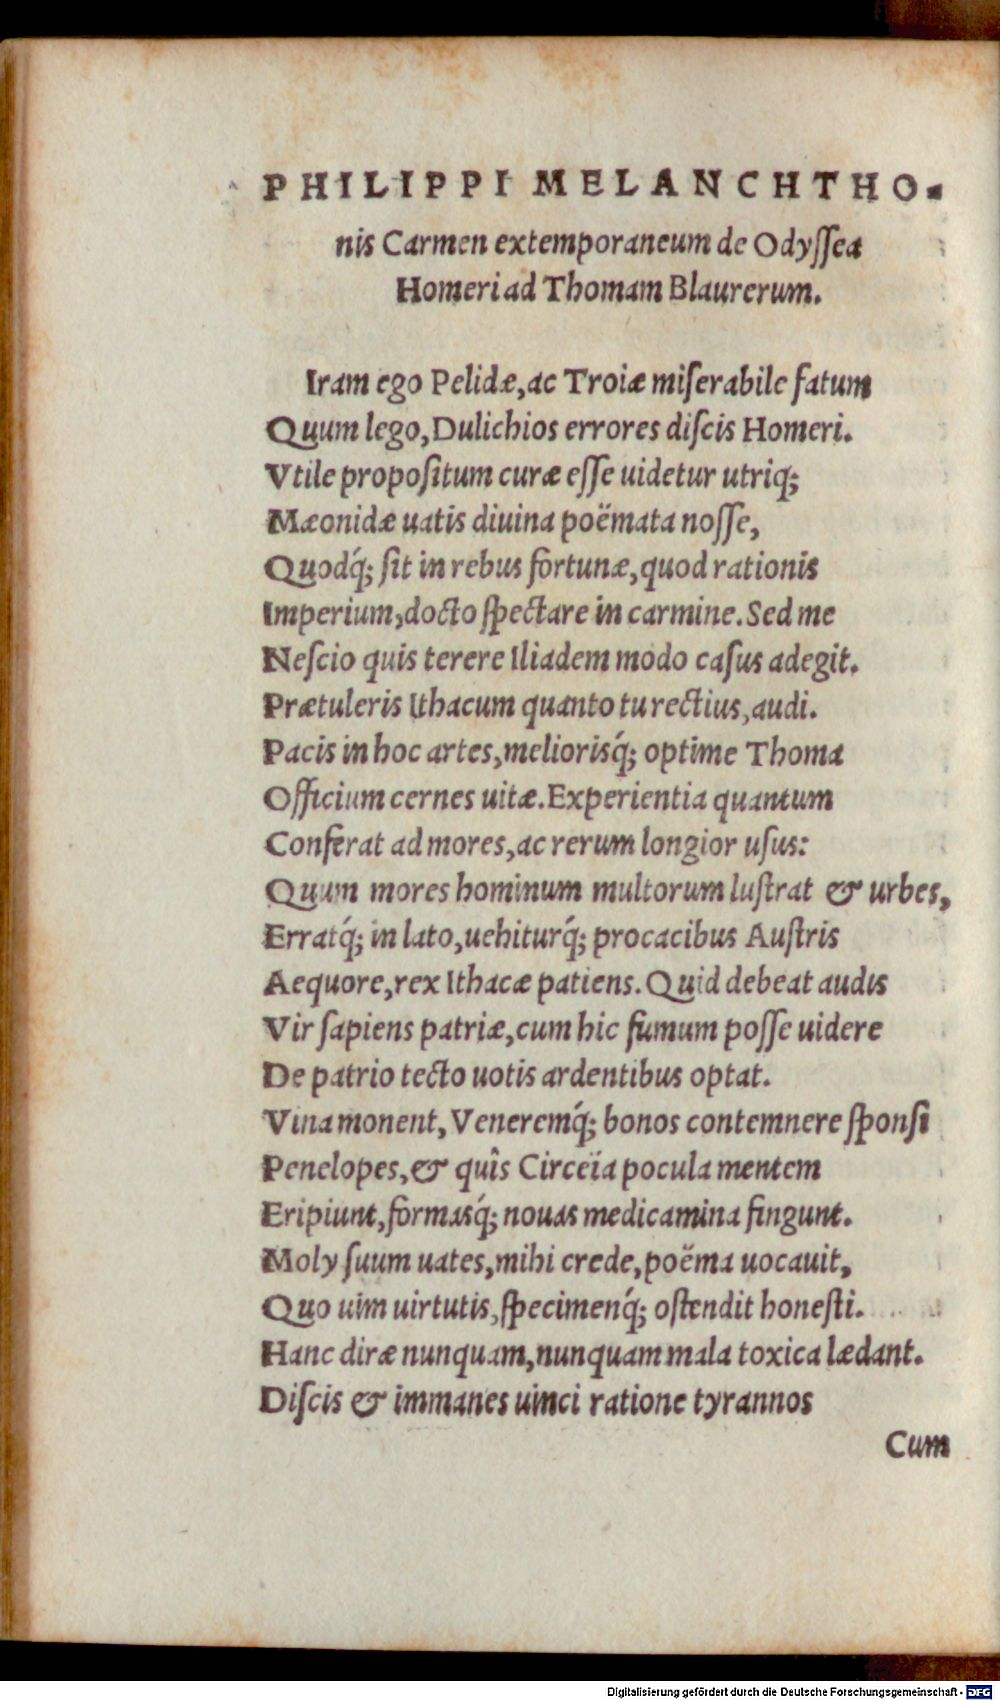 PHILIPPI MELANCHTHO-
nis Carmen extemporaneum de Odyſſea
Homeri ad Thomam Blaurerum.
Iram ego Pelidæ, ac Troiæ miſerabile fatum
Quum lego, Dulichios errores diſcis Homeri.
Vtile propoſitum curæ eſſe uidetur utriq;
Mæonidæ uatis diuina poëmata noſſe,
Quodq́; ſit in rebus fortunæ, quod rationis
Imperium, docto ſpectare in carmine. Sed me
Neſcio quis terere Iliadem modo caſus adegit.
Prætuleris Ithacum quanto tu rectius, audi.
Pacis in hoc artes, meliorisq́; optime Thoma
Officium cernes uitæ. Experientia quantum
Conferat ad mores, ac rerum longior uſus:
Quum mores hominum multorum luſtrat & urbes,
Erratq́; in lato, uehiturq́; procacibus Auſtris
Aequore, rex Ithacæ patiens. Quid debeat audis
Vir ſapiens patriæ, cum hic fumum poſſe uidere
De patrio tecto uotis ardentibus optat.
Vina monent, Veneremq́; bonos contemnere ſponſi
Penelopes, & quîs Circeïa pocula mentem
Eripiunt, formasq́; nouas medicamina fingunt.
Moly ſuum uates, mihi crede, poëma uocauit,
Quo uim uirtutis, ſpecimenq́; oſtendit honeſti.
Hanc diræ nunquam, nunquam mala toxica lædant.
Diſcis & immanes uinci ratione tyrannos
Cum
Digitalisierung gefördert durch die Deutsche Forschungsgemeinschaft - DFG